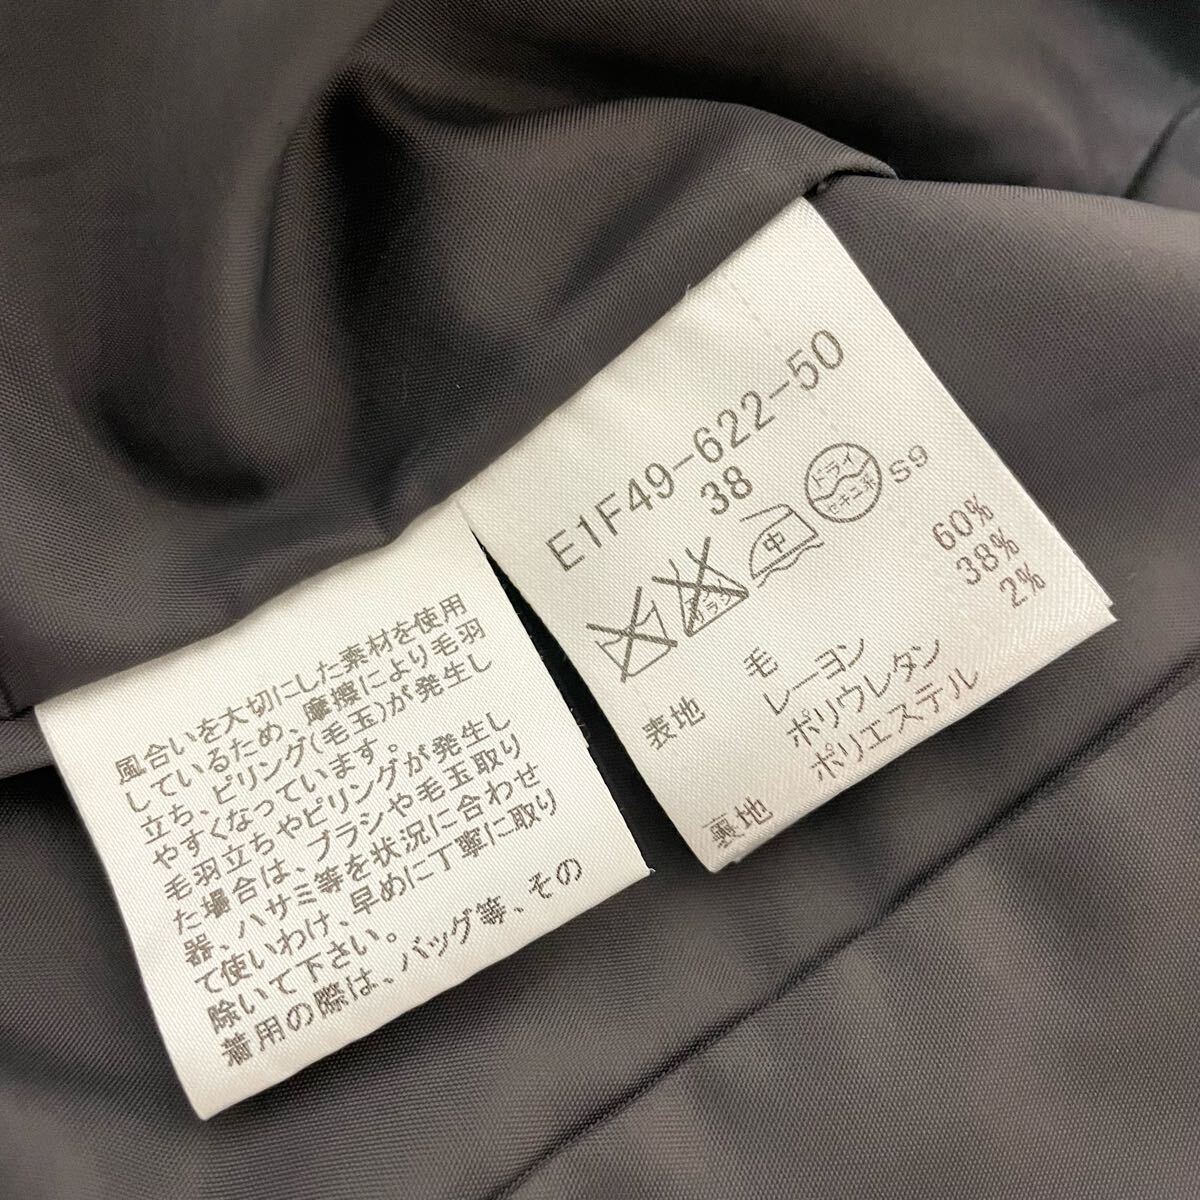 E1F49-622-50
38
エンソサラシ
中
ドライ
セキユ系
S9
表地 毛 60%
レーヨン 38%
ポリウレタン 2%
裏地 ポリエステル
風合いを大切にした素材を使用
しているため、摩擦により毛羽
立ち、ピリング(毛玉)が発生し
やすくなっています。
毛羽立ちやピリングが発生し
た場合は、ブラシや毛玉取り
器、ハサミ等を状況に合わせ
て使いわけ、早めに丁寧に取り
除いて下さい。
着用の際は、バッグ等、その